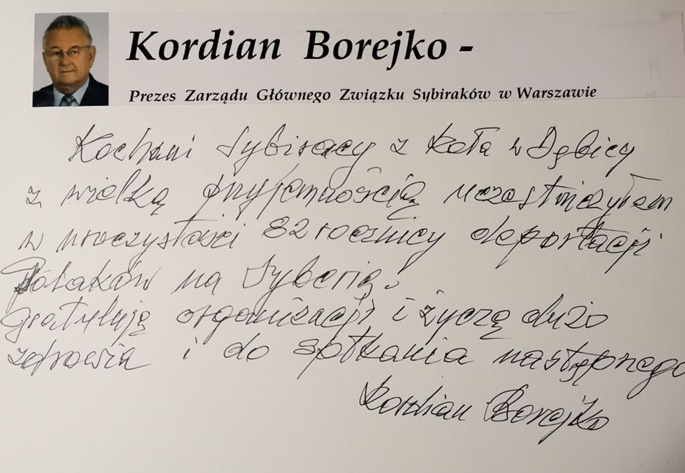 Kordian Borejko -
Prezes Zarządu Głównego Związku Sybiraków w Warszawie
Kochani Sybiracy z Koła w Dębicy
z wielką przyjemnością uczestniczyłem
w uroczystości 82 rocznicy deportacji
Polaków na Syberię.
Gratyluję organizacji i życzę dużo
zdrowia i do spotkania następnego
Kordian Borejko